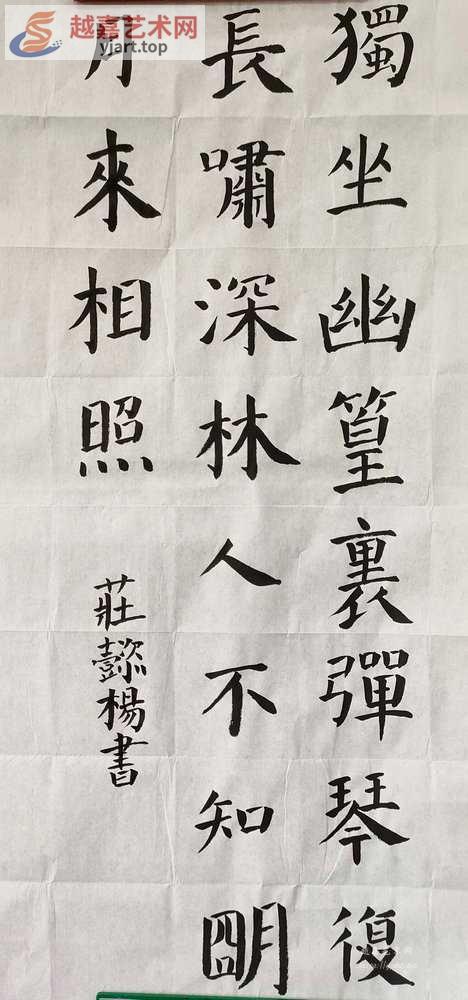 越嘉艺术网
yjart.top
獨坐幽篁裏彈琴復
長嘯深林人不知明
月來相照
莊懿楊書